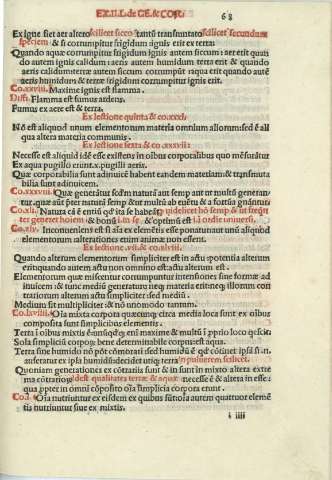 EX.II.L. de GE. & COR. 68
Ex igne fiet aer altero scilicet sicco tantū transmutato scilicet secundum
speciem & si corrumpitur frigidum ignis erit ex terra
Quando aquæ corrumpitur frigidum ignis autem siccum: aer erit quan
do autem ignis calidum: aeris autem humidum terra erit & quando
aeris calidum terræ autem siccum corrumpitur: aqua erit quando autē
aeris humidum & terræ frigidum corrumpitur ignis erit.
Co.xxviii. Maxime ignis est flamma.
Diffi. Flamma est fumus ardens.
Fumus ex aere est & terra.
Ex lectione quinta & co.xxxi.
Nō est aliquod unum elementorum materia omnium aliorum: sed ē ali
qua altera materia communis.
Ex lectione sexta & co.xxxvii:
Necesse est aliquid idē esse existens in oibus corporalibus quo mēsuraĩtur
Ex aqua pugilli erunt .x. pugilli aeris.
Quæ corporabilia sunt adinuicē habent eandem materiam: & transmuta
bilia sunt adinuicem.
Co.xxxviii. Quæ generātur scdm naturā aut semp aut ut multū generan
tur. quæ āt pter naturā & nō semp aut ut multū ab euētu & a fortūa gnāntur
Co.xli. Natura cā ē entiū
ter generet hoiem & hō in se. & spontaneum est & a primo & ordine uniuersi.
Co.xliv. Inconueniens est si aīa ex elemētis esse ponatur aut unū aliquod
elementorum alterationes enim animæ non essent.
Ex lectione .vii. & co.xlviii.
Quando alterum elementorum simpliciter est in actu potentia alterum
erit: quando autem actu non omnino est actu alterum est.
Elementorum quæ miscentur corrumpuntur intensiones siue formæ ad
inuicem: & tunc medii generatum neq; materia erit: neq; illorum con
trariorum alterum actu simpliciter: sed medium.
Medium sit multipliciter & nō idonomodo tantum.
Co.lxviiii. Oīa mixta corpora quæcumq; circa media loca sunt ex oibus
composita sunt simplicibus elementis.
Terra ī oibus mixtis ē: unūqdq; ent maxime & multū ī pprio loco quiesc̄.
Sola simpliciū corpoq; bene determinabile corpus est: aqua.
Terra sine humido nō pōt cōmorari: sed humidū ē qd cōtinet ipsā: si .n.
auferatur ex ipsa humidū: decidet utiq; terra in puluerem scilicet.
Quoniam generationes ex cōtrariis sunt & in sunt in mixto altera extre
ma cōtrariorum idest qualitates terræ & aquæ necesse ē & altera in esse.
qua ppter in omni cōposito oīa simplicia corpora erunt.
Co.l. Oīa nutriuntur ex eisdem ex quibus sunt: oīa autem quatuor eleme
tis nutriuntur siue ex mixtis.
i iiii